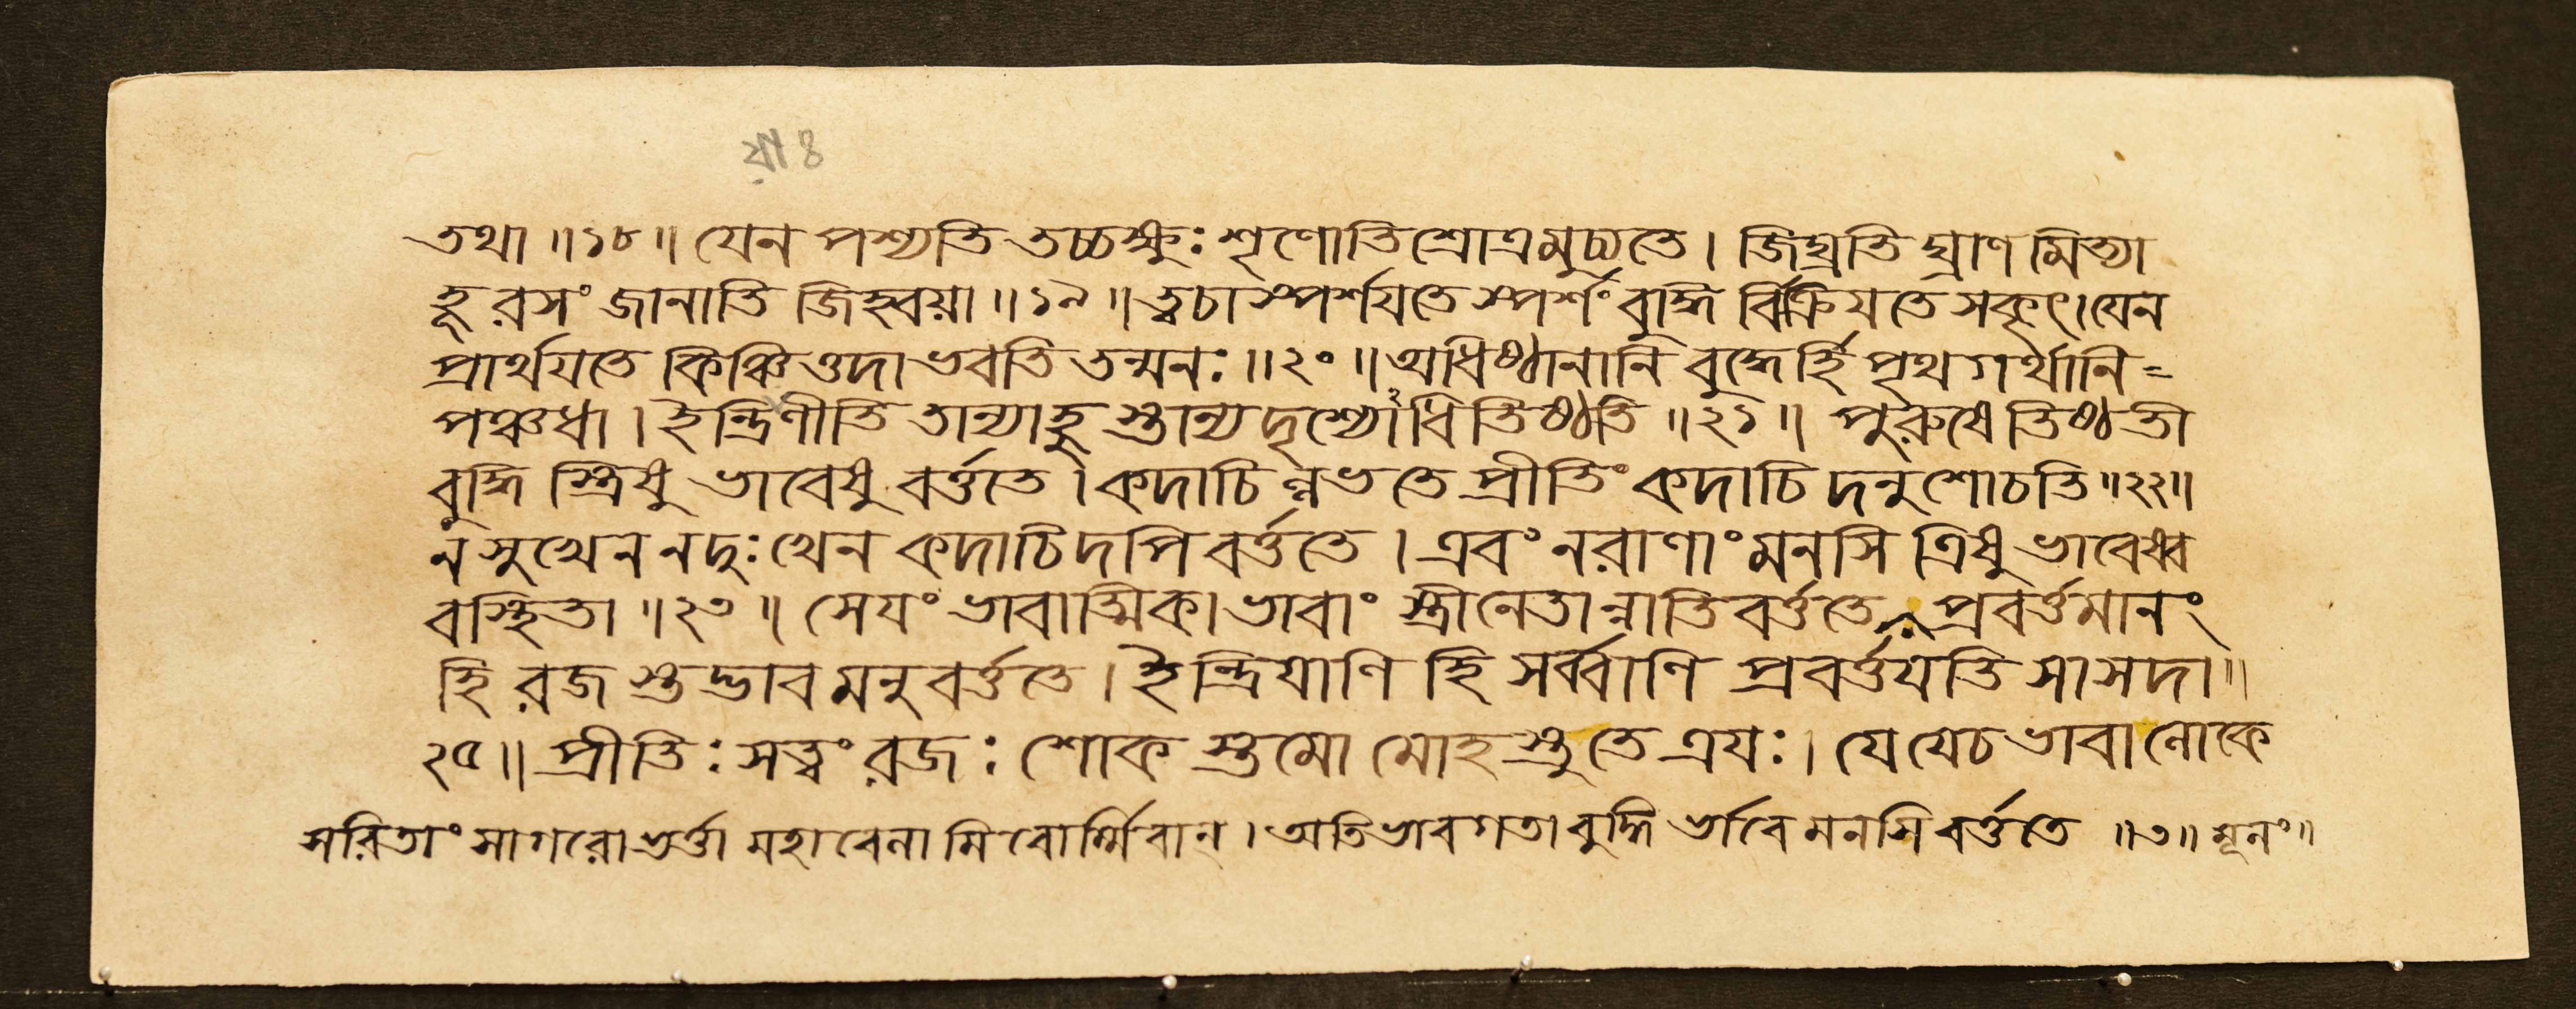 তথা ॥১৮॥ যেন পশ্যতি তচ্চক্ষুঃ শৃণোতি শ্রোত্রমুচ্যতে। জিঘ্রতি ঘ্রাণমিত্যা
হূ রসং জানাতি জিহ্বয়া ॥১৯॥ ত্বচা স্পর্শযতে স্পর্শং বুদ্ধি র্বিক্রিযতে সকৃৎ। যেন
প্রার্থযতে কিঞ্চিত্তদা ভবতি তন্মনঃ ॥২০॥ অধিষ্ঠানানি বুদ্ধের্হি পৃথগর্থানি =
পঞ্চধা। ইন্দ্রিণীতি তান্যাহু স্তান্যদৃশ্যোঽধিতিষ্ঠতি ॥২১॥ পুরুষে তিষ্ঠতী
বুদ্ধি স্ত্রিষু ভাবেষু বর্ত্ততে। কদাচিল্লভতে প্রীতিং কদাচিদনুশোচতি ॥২২॥
ন সুখেন ন দুঃখেন কদাচিদপি বর্ত্ততে। এবং নরাণাং মনসি ত্রিষু ভাবেষ্ব
বস্থিতা ॥২৩॥ সেযং ভাবাত্মিকা ভাবাং স্ত্রীনেতান্নাতিবর্ত্ততে প্রবর্ত্তমানং
হি রজ স্তদ্ভাবমনুবর্ত্ততে। ইন্দ্রিযাণি হি সর্ব্বাণি প্রবর্ত্তযতি সা সদা॥
২৫॥ প্রীতিঃ সত্ত্বং রজঃ শোক স্তমো মোহ স্তু তে ত্রযঃ। যে যে চ ভাবা লোকে
সরিতাং সাগরো ভর্ত্তা মহাবেলামিবোর্ম্মিবান্। অতিভাবগতা বুদ্ধি র্ভাবে মনসি বর্ত্ততে ॥৩॥ মূলং॥